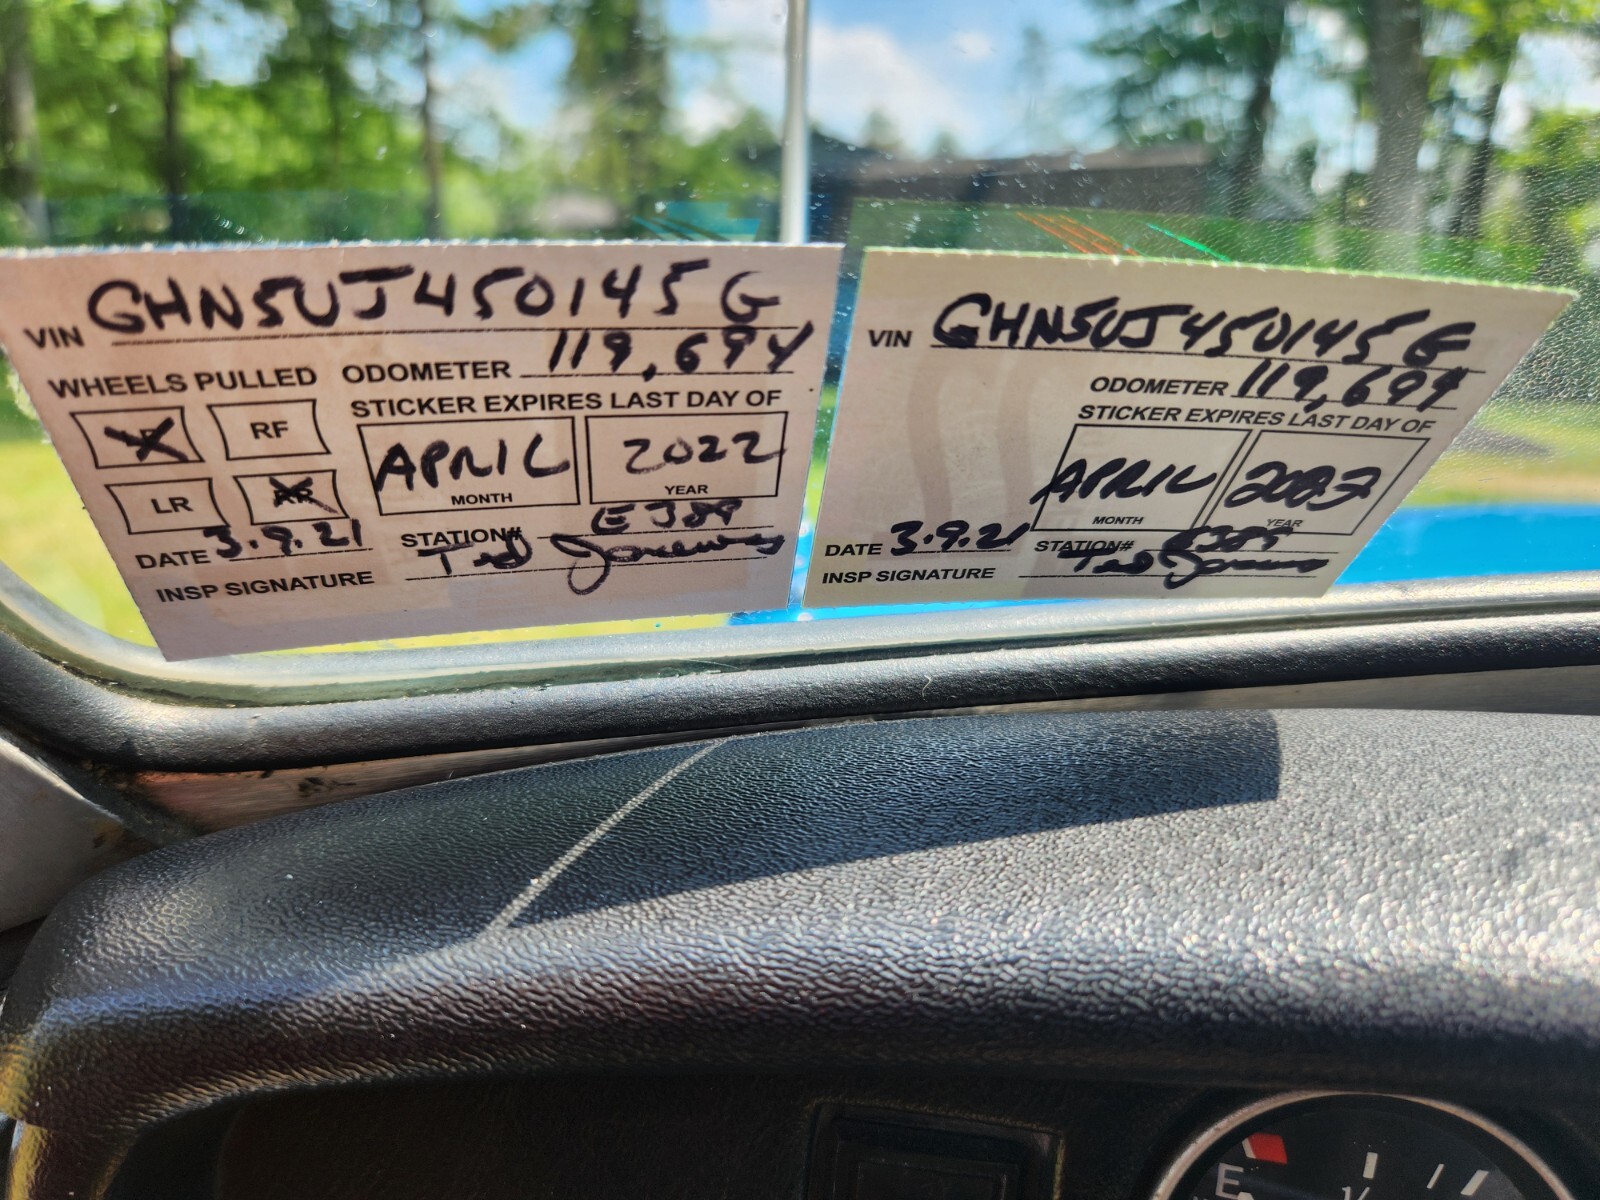 VIN GHN5UJ450145G
WHEELS PULLED
ODOMETER 119,694
STICKER EXPIRES LAST DAY OF
RF
APRIL 2022
MONTH YEAR
LR RR
DATE 3.9.21
STATION# EJ89
INSP SIGNATURE Ted
VIN GHN5UJ450145G
ODOMETER 119,694
STICKER EXPIRES LAST DAY OF
APRIL
MONTH YEAR
DATE 3.9.21
STATION# EJ89
INSP SIGNATURE Ted
E